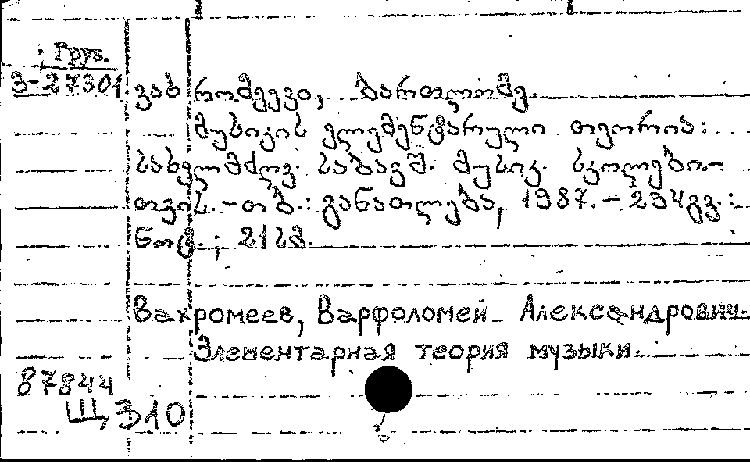 Груз.
3-27301
ვახრომეევი, ბართლომე.
მუსიკის ელემენტარული თეორია:
სახელმძღვ. საბავშ. მუსიკ. სკოლები-
თვის. - თბ.: განათლება, 1987. - 234გვ.:
ნოტ.; 21სმ.
Вахромеев, Варфоломей Александрович.
Элементарная теория музыки.
87844
Щ310